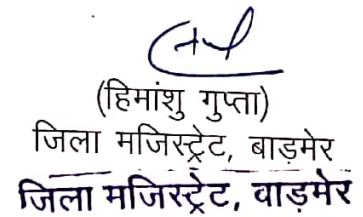 (हिमांशु गुप्ता)
जिला मजिस्ट्रेट, बाड़मेर
जिला मजिस्ट्रेट, बाड़मेर